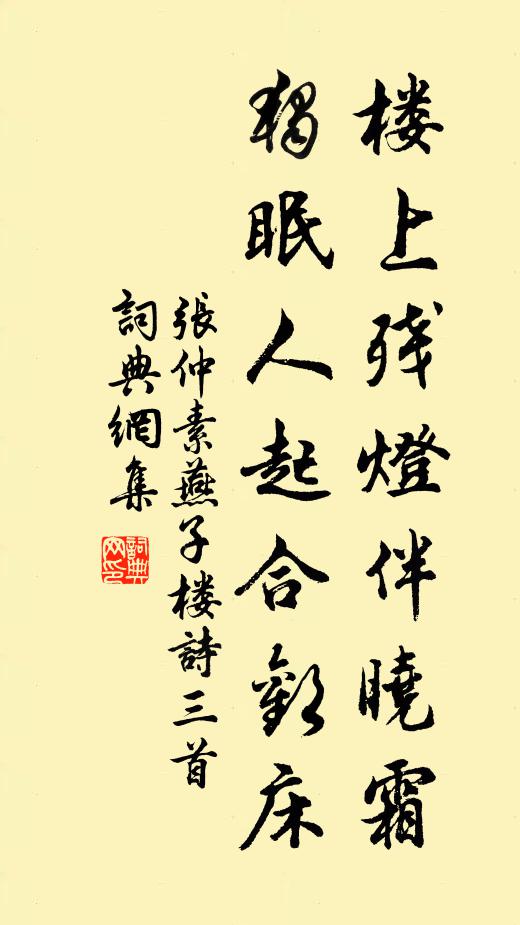 楼上残燈伴曉霜
独眠人起合歡床
張仲素燕子楼詩三首
詞典網集
詞典网印